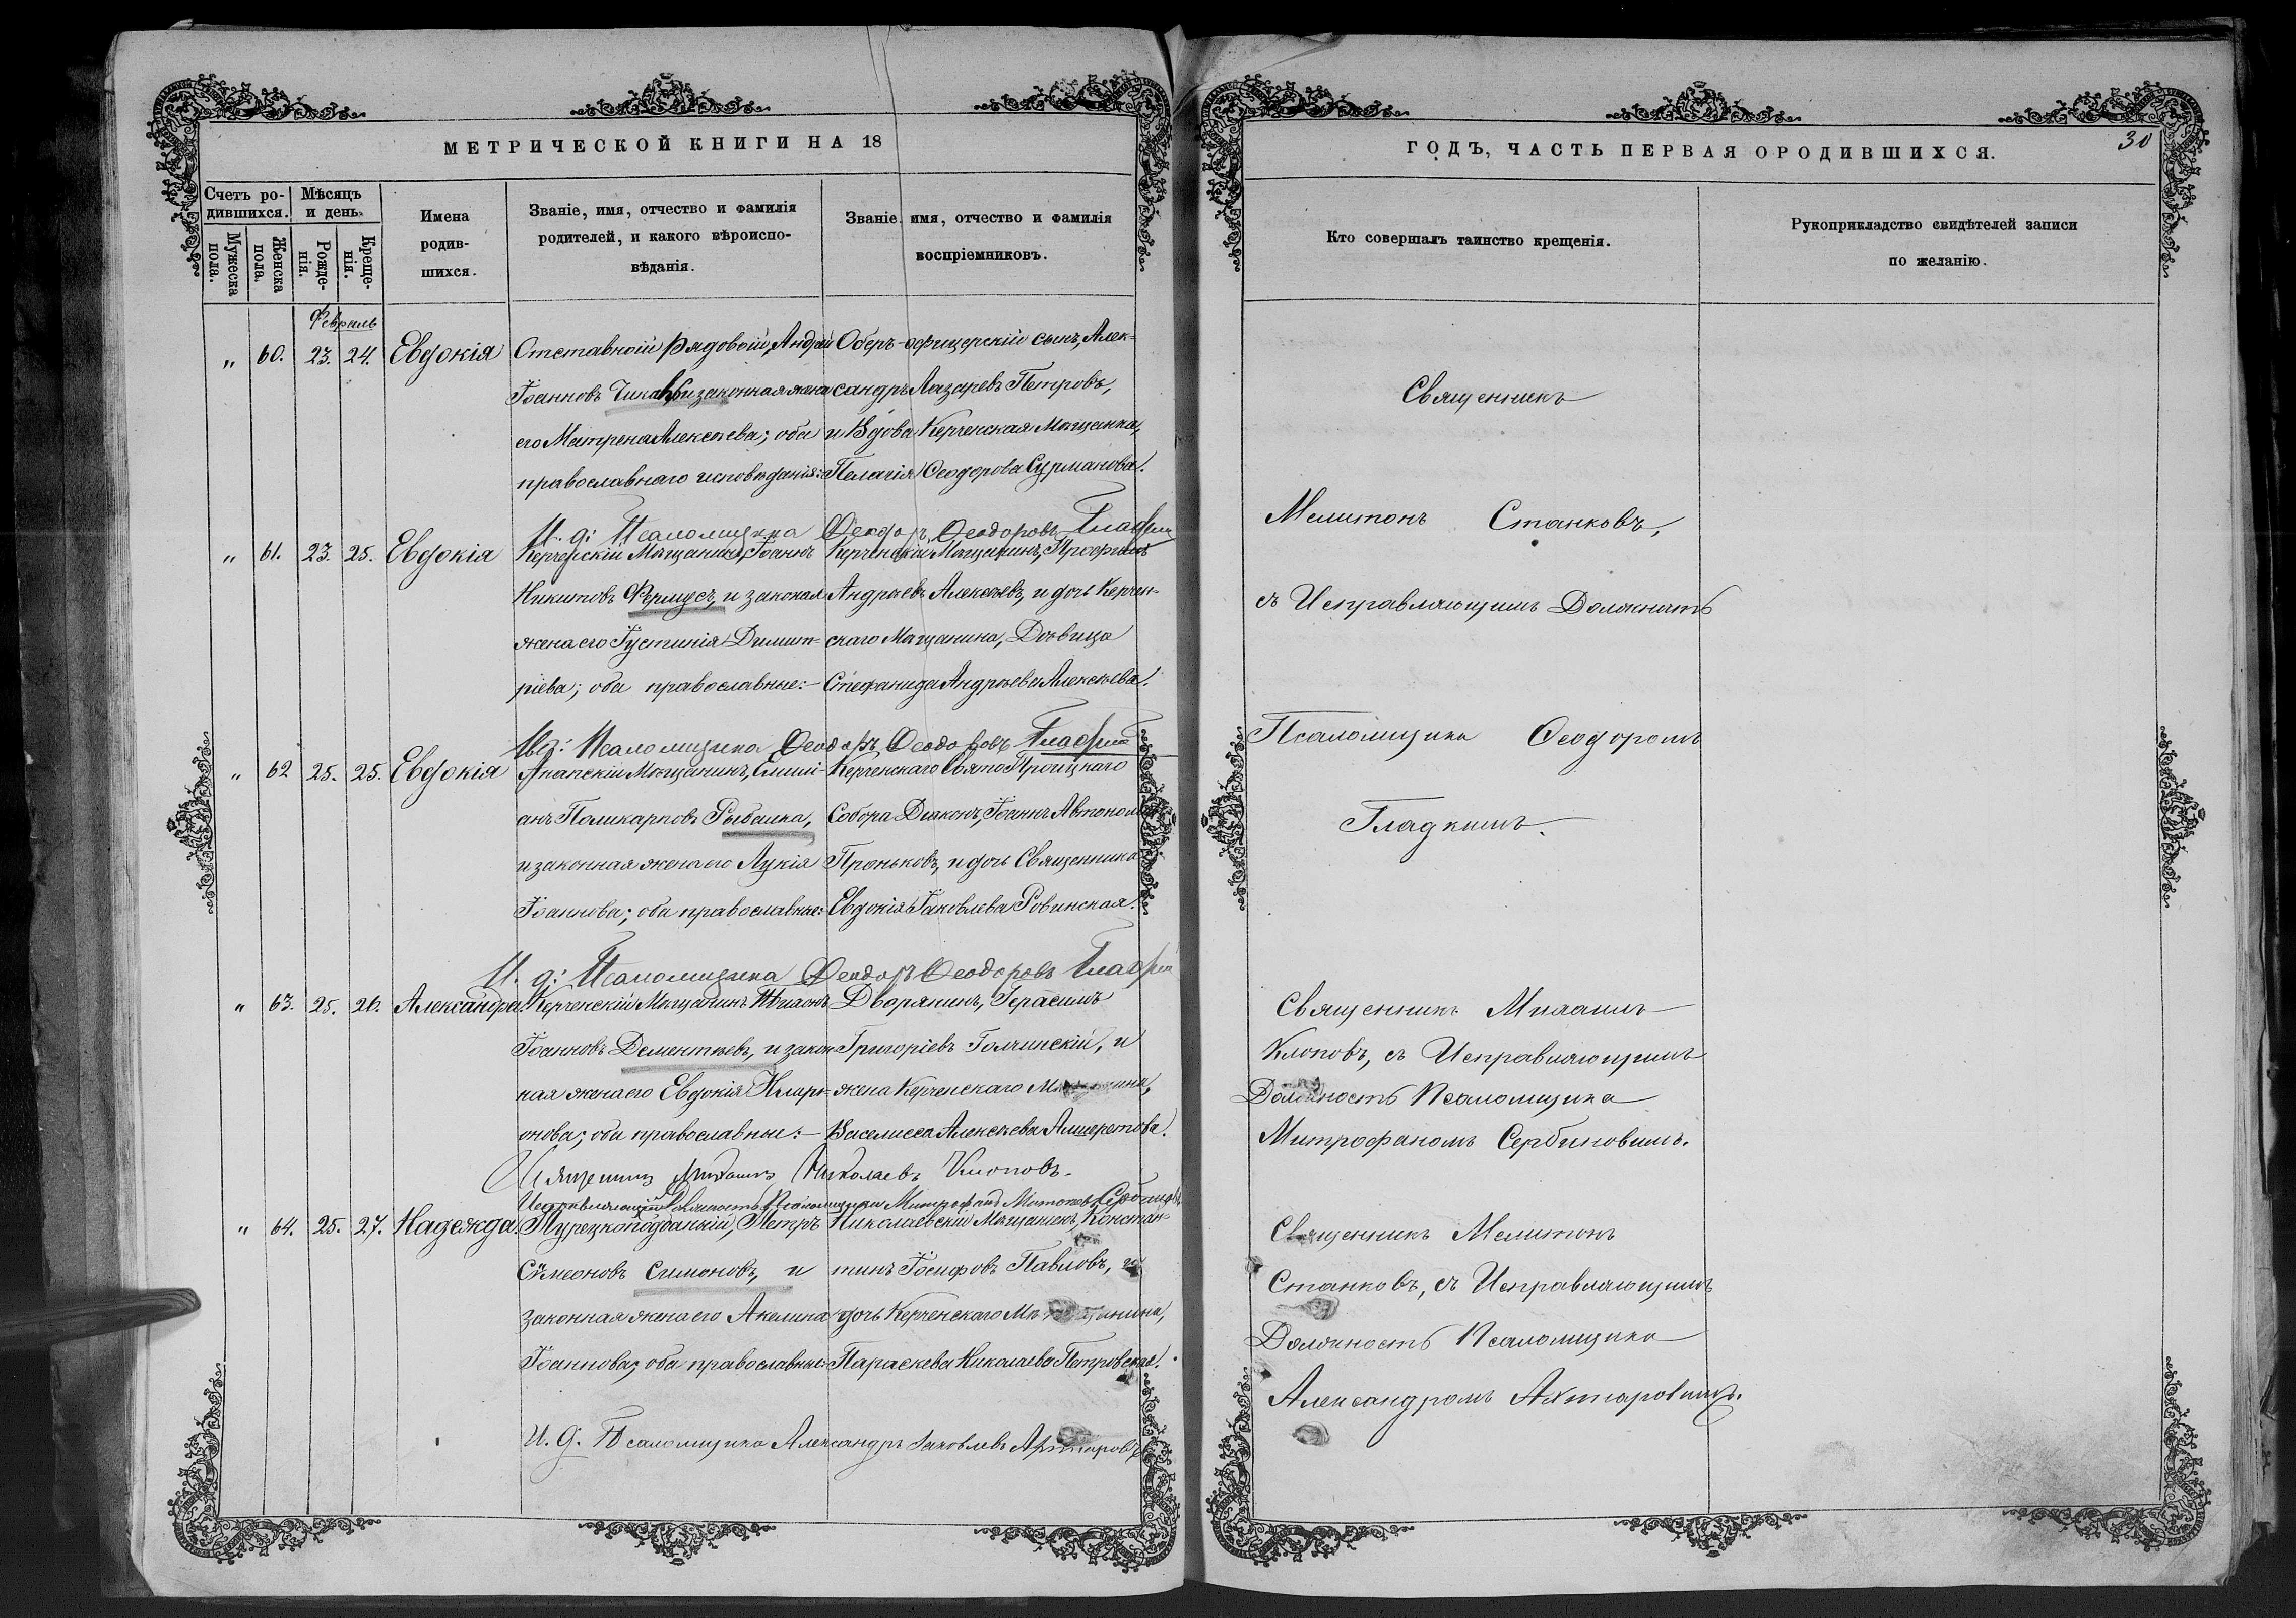 МЕТРИЧЕСКОЙ КНИГИ НА 18
Счетъ ро-
дившихся.
Мѣсяцъ
и день.
Мужеска
пола.
Женска
пола.
Рожде-
нія.
Креще-
нія.
Имена
родив-
шихся.
Званіе, имя, отчество и фамилія
родителей, и какого вѣроиспо-
вѣданія.
Званіе, имя, отчество и фамилія
воспріемниковъ.
Февраль
„ 60. 23. 24. Евдокія
Отставной рядовой, Андрей
Іоанновъ и законная жена
его Матрена Алексѣева; оба
православнаго исповѣданія:
Оберъ-офицерскій сынъ, Алек-
сандръ Лазаревъ Петровъ,
и Вдова Керченская Мѣщанка,
Пелагія Ѳеодорова Сурманова.
И. д: Псаломщика Ѳеодоръ Ѳеодоровъ Гладкій
„ 61. 23. 25. Евдокія
Керченскій Мѣщанинъ, Іоаннъ
Никитовъ и законая
жена его Іустинія Димит-
ріева; оба православные:-
Керченскій Мѣщанинъ, Трофимъ
Андреевъ Алексѣевъ, и дочь Керчен-
скаго Мѣщанина, Дѣвица
Стефанида Андреева Алексѣева.
И. д: Псаломщика Ѳеодоръ Ѳеодоровъ Гладкій
„ 62 25. 25. Евдокія
Анапскій Мѣщанинъ, Емили-
анъ Поликарповъ Рыбалка,
и законная жена его Лукія
Іоаннова; оба православные:
Керченскаго Свято Троицкаго
Собора Діаконъ, Іоаннъ Автономовъ
Проньковъ, и дочь Священника
Евдокія Іаковлева Ровинская.
И. д: Псаломщика Ѳеодоръ Ѳеодоровъ Гладкій
„ 63. 25. 26. Александра.
Керченскій Мѣщанинъ
Іоанновъ Дементьевъ, и закон-
ная жена его Евдокія Илларі-
онова; оба православные:-
Дворянинъ, Герасимъ
Григоріевъ Голчинскій, и
жена Керченскаго Мѣщанина,
Василисса Алексѣева Алшеретова.
Священникъ Михаилъ Николаевъ Клоповъ.
Исправляющій Должность Псаломщика Митрофанъ Сербиновъ
„ 64. 25. 27. Надежда.
Турецкоподданый, Петръ
Сѵмеоновъ Симоновъ, и
законная жена его Акелина
Іоаннова; оба православные:
Николаевскій Мѣщанинъ, Констан-
тинъ Іосифовъ Павловъ, и
дочь Керченскаго Мѣщанина,
Параскева Николаева Петровская.
И. д. Псаломщика Александръ Іаковлевъ Ахтаровъ
ГОДЪ, ЧАСТЬ ПЕРВАЯ О РОДИВШИХСЯ.
30
Кто совершалъ таинство крещенія.
Рукоприкладство свидѣтелей записи
по желанію.
Священникъ
Мелитонъ Станковъ,
съ Исправляющимъ Должность
Псаломщика Ѳеодоромъ
Гладкимъ.
Священникъ Михаилъ
Клоповъ, съ Исправляющимъ
Должность Псаломщика
Митрофаномъ Сербиновымъ.
Священникъ Мелитонъ
Станковъ, съ Исправляющимъ
Должность Псаломщика
Александромъ Ахтаровымъ.